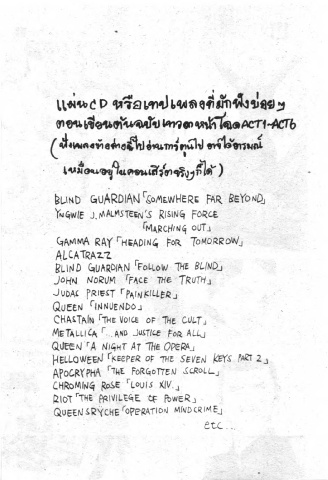 แผ่นCD หรือเทปเพลงที่มักฟังบ่อยๆ
ตอนเขียนต้นฉบับเทวดาหน้าโฉดACT1-ACT6
(ฟังเพลงตัวอย่างนี้ไปอ่านการ์ตูนไป อาจได้อารมณ์
เหมือนอยู่ในคอนเสิร์ตจริงๆก็ได้)
BLIND GUARDIAN「SOMEWHERE FAR BEYOND」
YNGWIE J. MALMSTEEN'S RISING FORCE
「MARCHING OUT」
GAMMA RAY「HEADING FOR TOMORROW」
ALCATRAZZ
BLIND GUARDIAN「FOLLOW THE BLIND」
JOHN NORUM「FACE THE TRUTH」
JUDAS PRIEST「PAINKILLER」
QUEEN「INNUENDO」
CHASTAIN「THE VOICE OF THE CULT」
METALLICA「...AND JUSTICE FOR ALL」
QUEEN「A NIGHT AT THE OPERA」
HELLOWEEN「KEEPER OF THE SEVEN KEYS PART 2」
APOCRYPHA「THE FORGOTTEN SCROLL」
CHROMING ROSE「LOUIS XIV」
RIOT「THE PRIVILEGE OF POWER」
QUEENSRYCHE「OPERATION MINDCRIME」
etc....